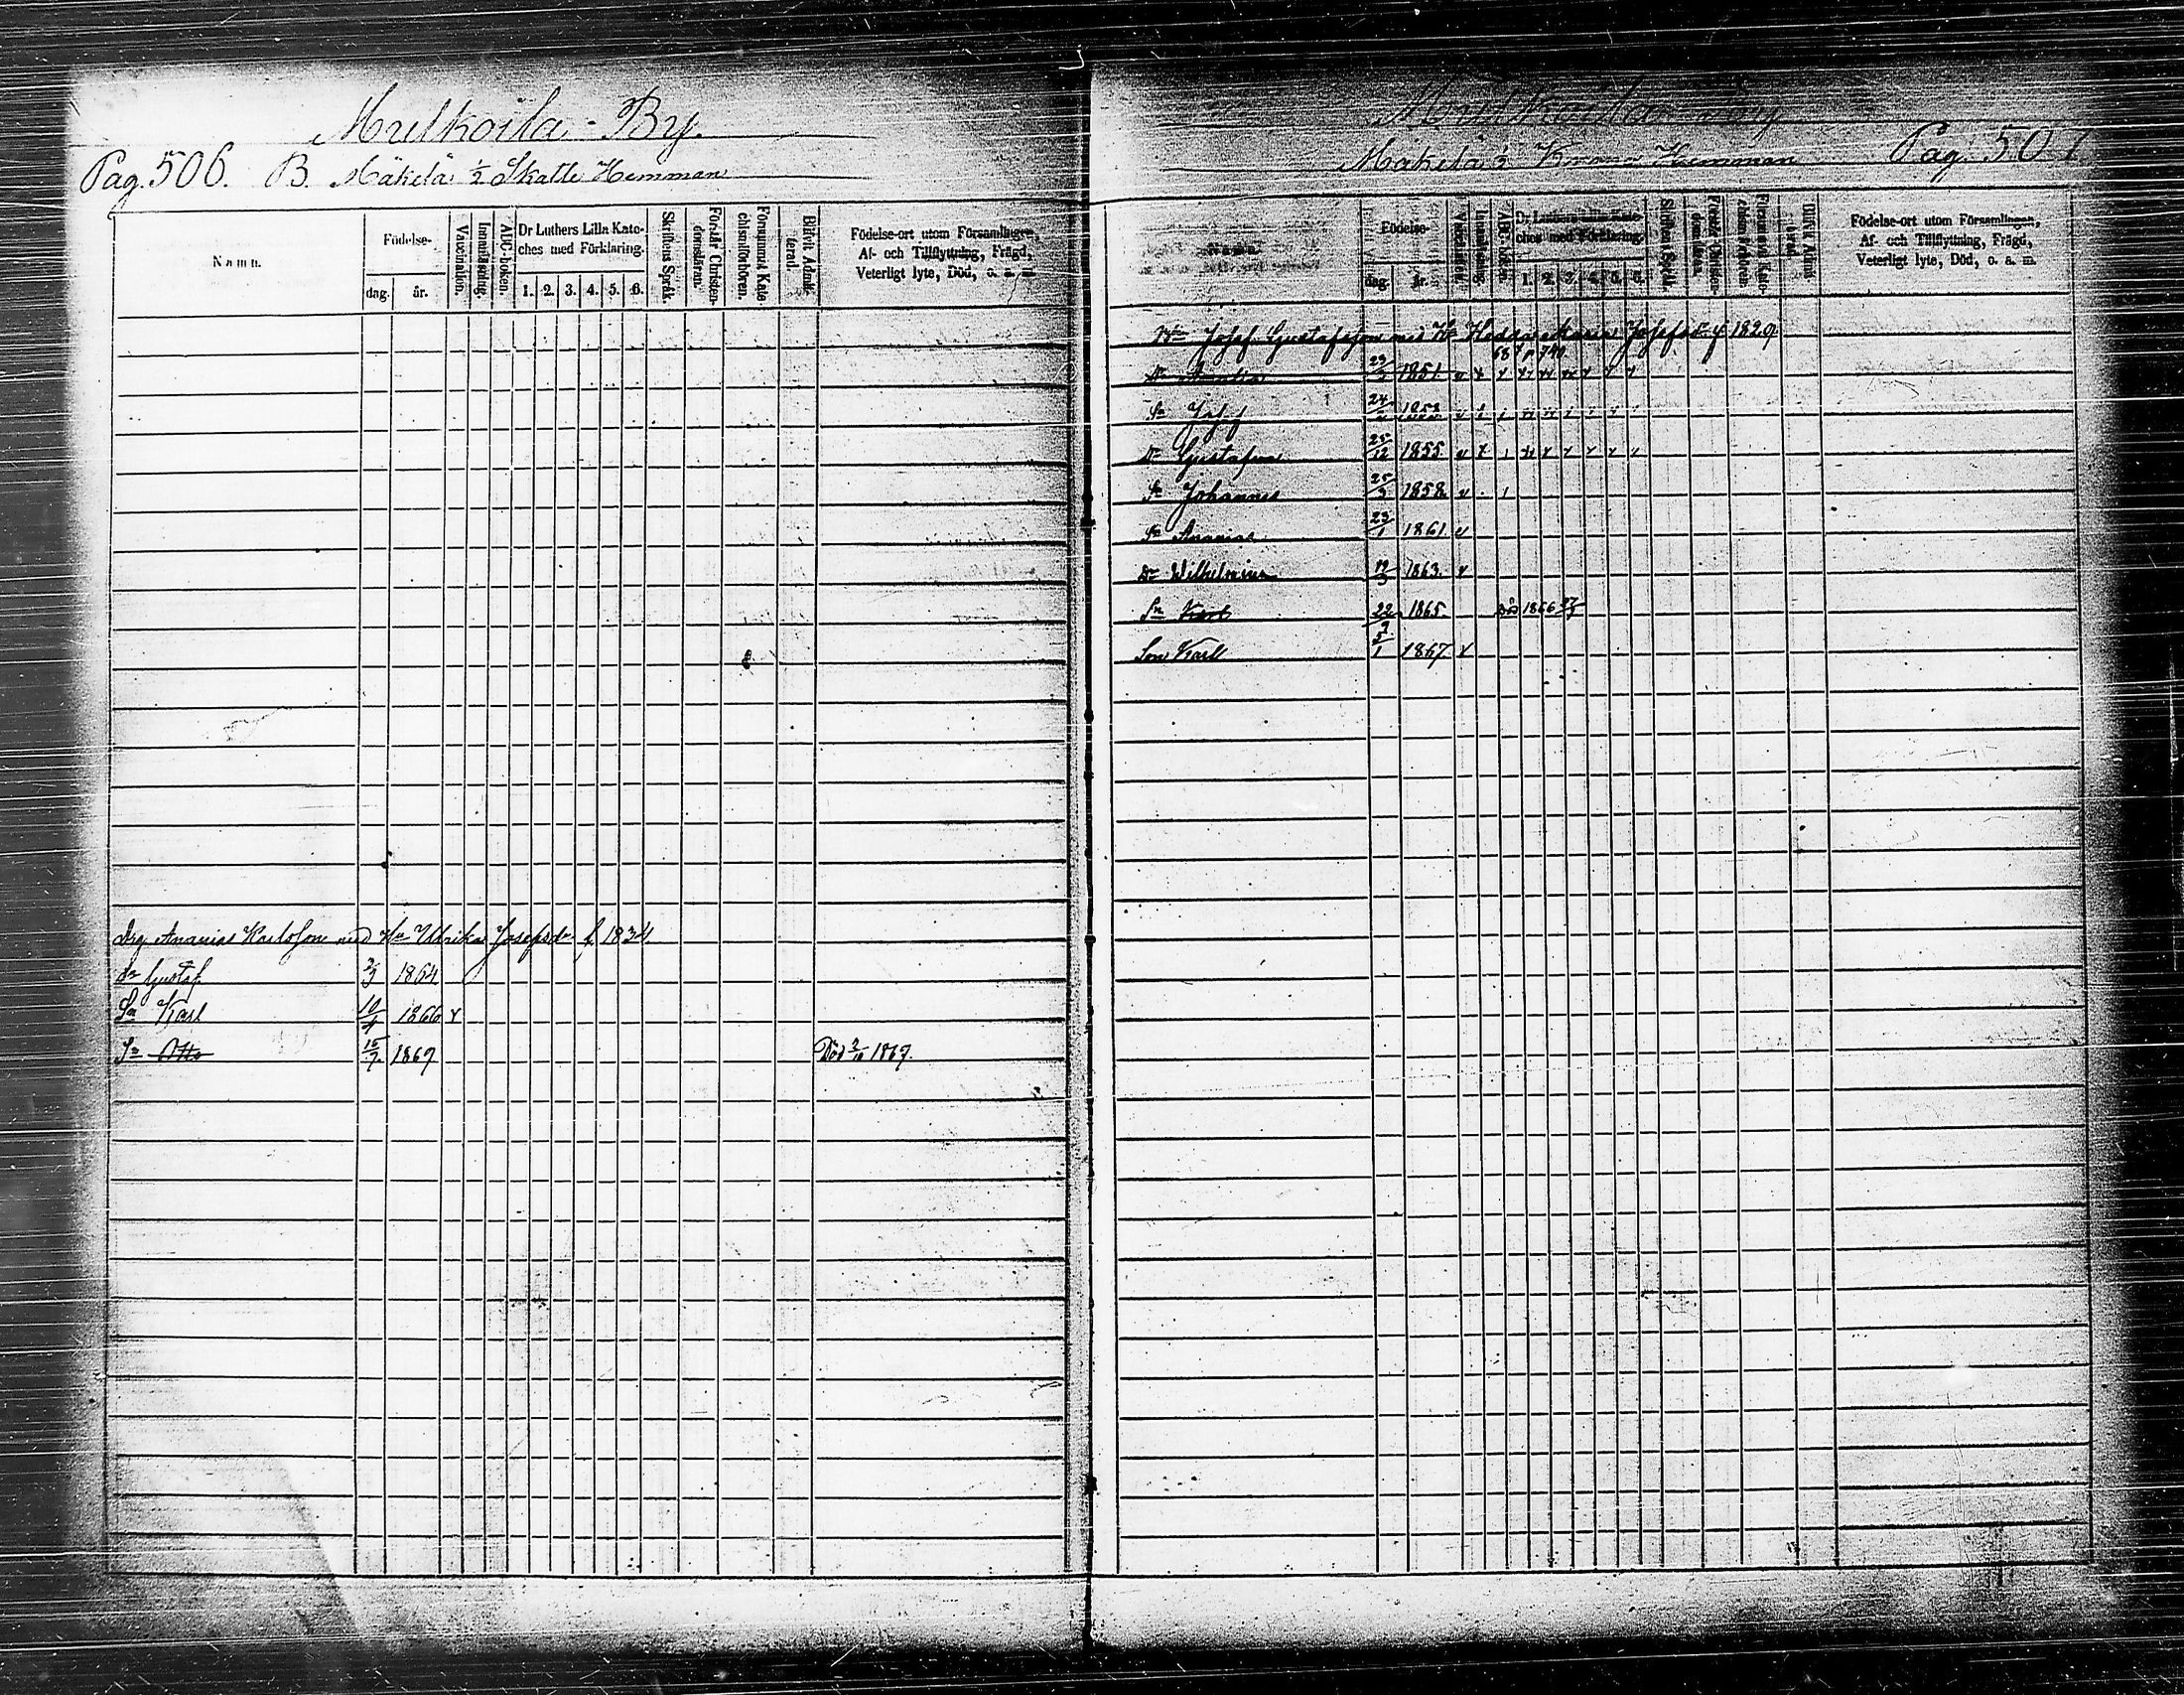 Mulkoila - By.
Pag. 506. B. Mäkelä ½ Skatte Hemman
Namn.
Födelse-
dag.
år.
Vaccination.
Innanläsning.
ABC-boken.
Dr Luthers Lilla Kate-
ches med Förklaring.
1. 2. 3. 4. 5. 6.
Skriftens Språk.
Förstår Christen-
domsläran.
Försummat Kate-
chismiförhören.
Blifvit Admit-
terad.
Födelse-ort utom Församlingen,
Af- och Tillflyttning, Frägd,
Veterligt lyte, Död, o. a. m.
Drg. Ananias Karlsson med Hu Ulrika Josefsdr f. 1834
Sn Gustaf 2/3 1864
Sn Karl 10/4 1866 v
Sn Otto 15/7 1867 Död 2/10 1867.
By
Mäkelä ½ Krono Hemman Pag. 507
Namn.
Födelse-
dag.
år.
Dr Luthers Lilla Kate-
ches med Förklaring.
1. 2. 3. 4. 5. 6.
Skriftens Språk.
Förstår Christen-
domsläran.
Blifvit Admit-
terad.
Födelse-ort utom Församlingen,
Af- och Tillflyttning, Frägd,
Veterligt lyte, Död, o. a. m.
Josef Gustafsson med Hu Hedda Maria Josefsd. f 1829
68 p 740
Dr Amalia 1851
Sn Josef 24 185
Dr Gustafva 25/12 1855
Sn Johannes 25/3 1858
Sn Ananias 23/1 1861 v
Dr Wilhelmina 19/3 1863. v
Sn Karl 22/9 1865. Död 1866
Son Karl 5/1 1867 v